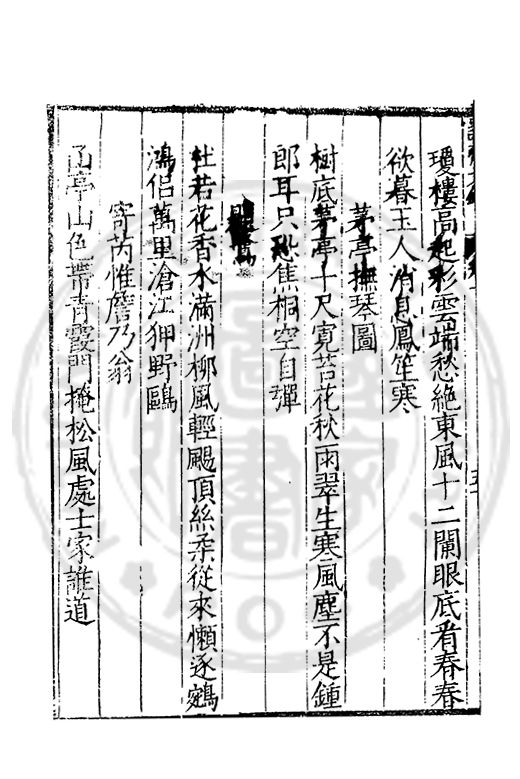 瓊樓高起彩雲端愁絶東風十二闌眼底看春春
欲暮玉人消息鳳笙寒
茅亭撫琴圖
樹底茅亭十尺寛苔花秋雨翠生寒風塵不是鍾
郎耳只恐焦桐空自彈
杜若花香水滿洲柳風輕颺頂絲柔從來懶逐鵷
鴻侣萬里滄江狎野鷗
寄芮惟詹乃翁
亭山色帶青霞門掩松風處士家誰道